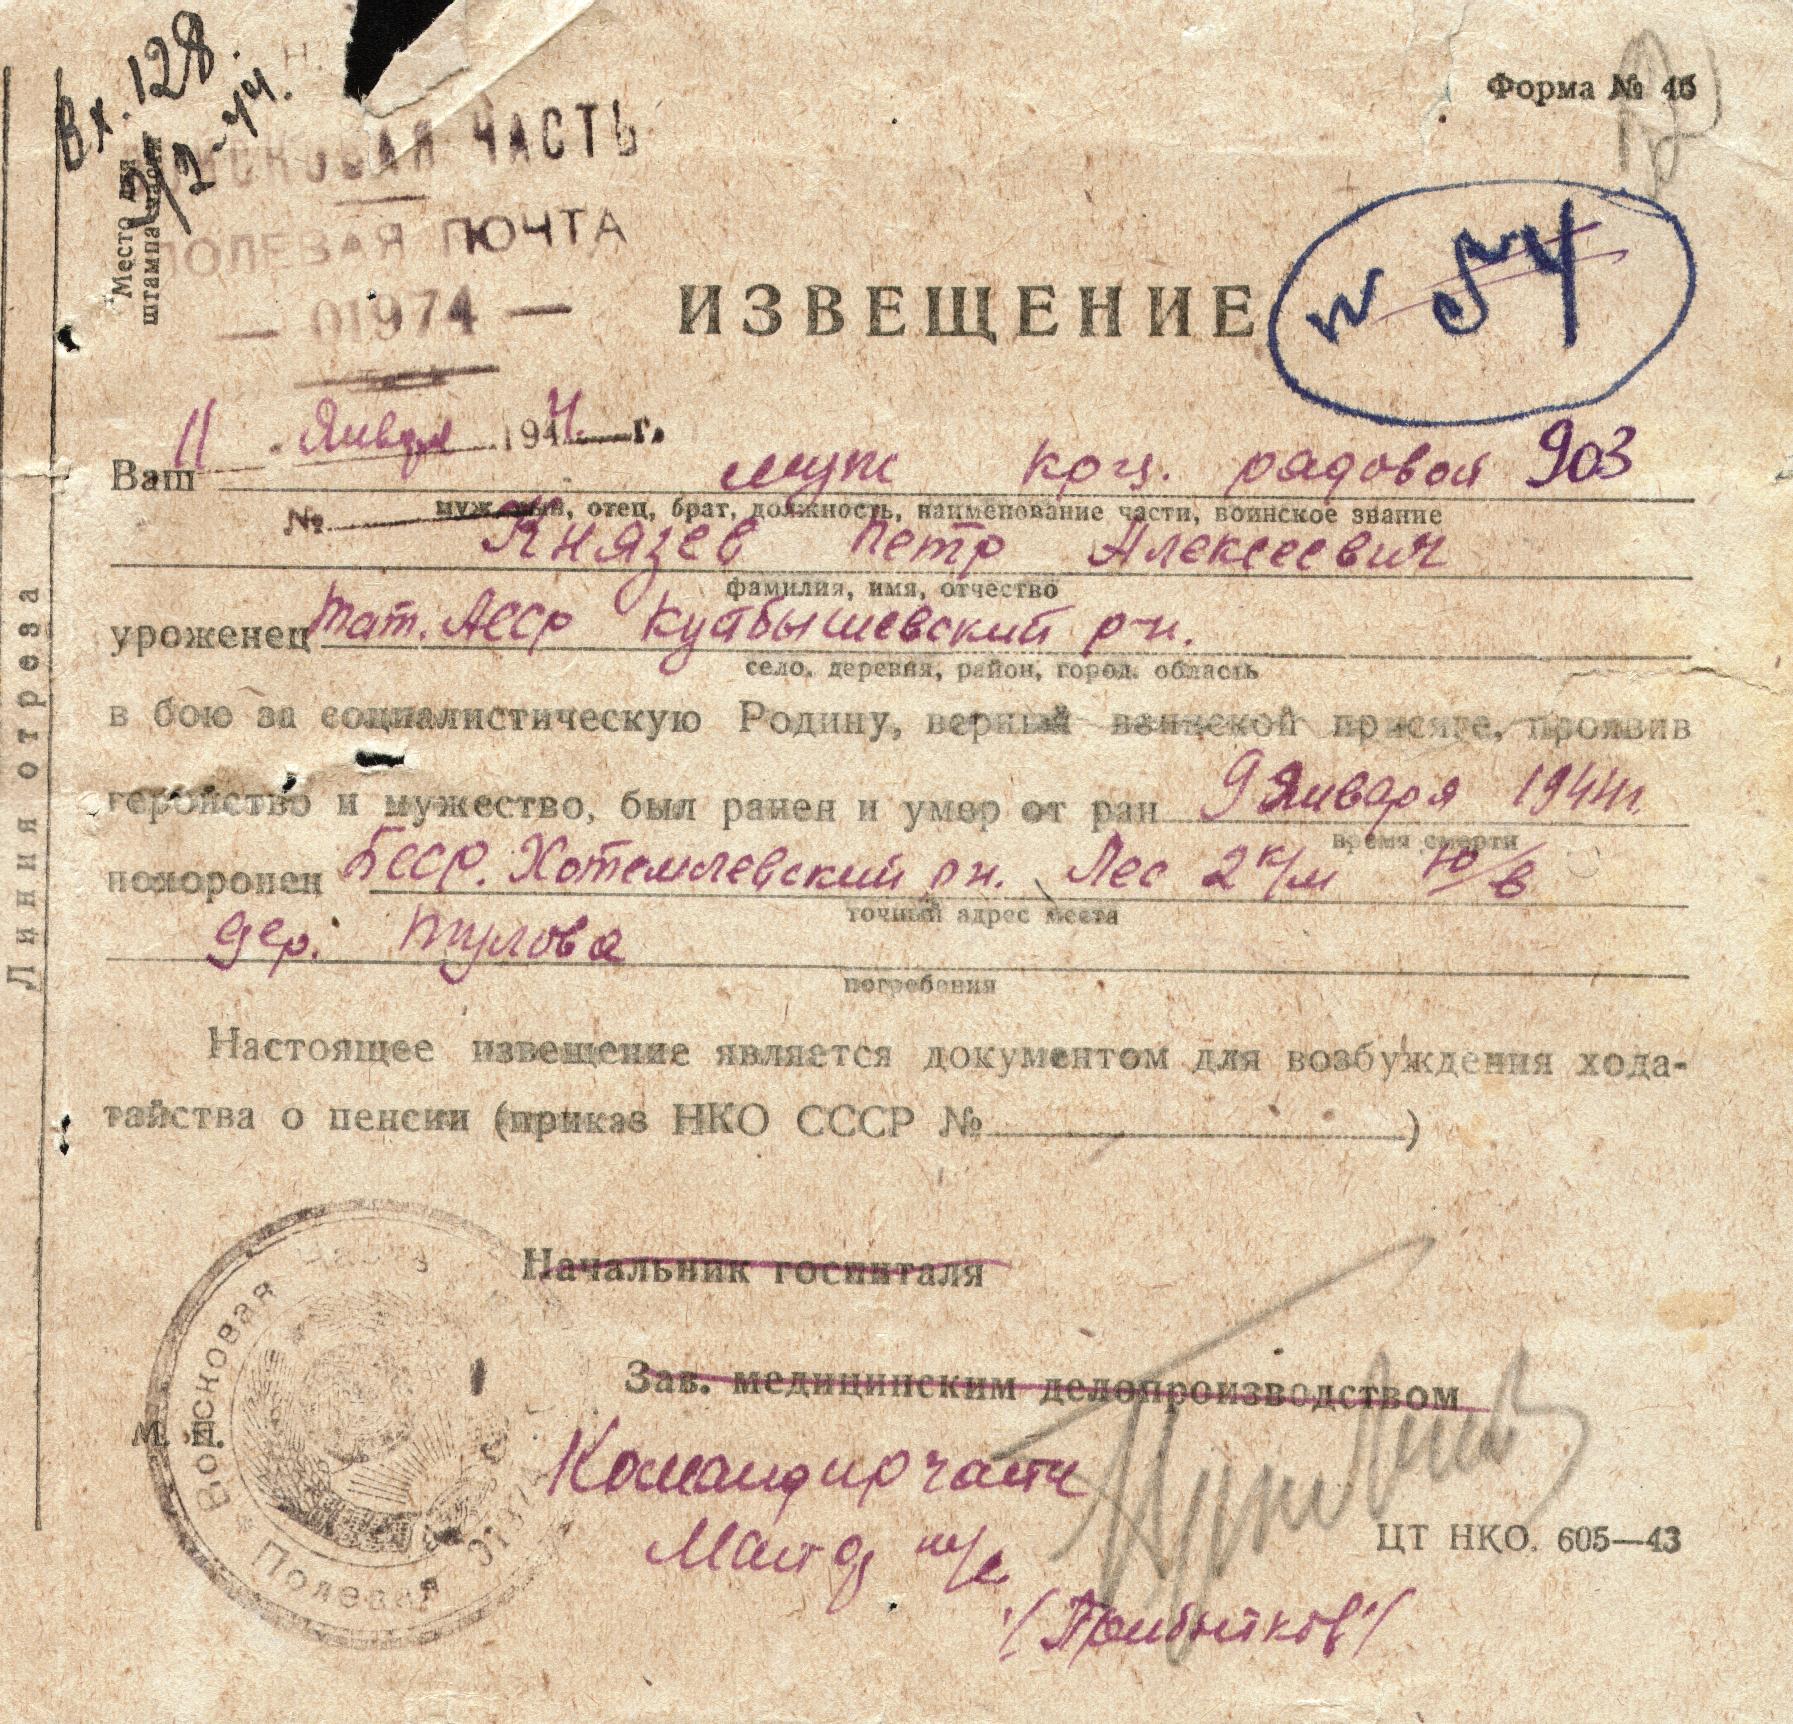 Вх. 128.
Форма № 45
Место для
штампа части
ВОЙСКОВАЯ ЧАСТЬ
ПОЛЕВАЯ ПОЧТА
— 01974 —
ИЗВЕЩЕНИЕ
N 54
11 Января 1944 г.
Ваш муж крц. рядовой 903
№ муж, сын, отец, брат, должность, наименование части, воинское звание
Князев Петр Алексеевич
фамилия, имя, отчество
уроженец Тат. АССР Куйбышевский р-н.
село, деревня, район, город, область
в бою за социалистическую Родину, верный воинской присяге, проявив
геройство и мужество, был ранен и умер от ран 9 Января 1944г.
время смерти
похоронен БССР. Хотемлевский рн. Лес 2 к/м Ю/В
точный адрес места
дер. Тулова
погребения
Настоящее извещение является документом для возбуждения хода-
тайства о пенсии (приказ НКО СССР № )
Начальник госпиталя
Зав. медицинским делопроизводством
М. П.
Войсковая часть
Полевая 01974
Командир части
ЦТ НКО. 605—43
Линия отреза